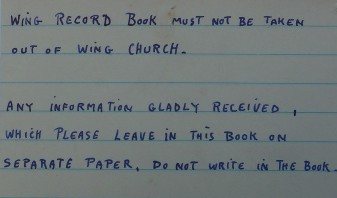 WING RECORD BOOK MUST NOT BE TAKEN
OUT OF WING CHURCH.
ANY INFORMATION GLADLY RECEIVED,
WHICH PLEASE LEAVE IN THIS BOOK ON
SEPARATE PAPER. DO NOT WRITE IN THE BOOK.